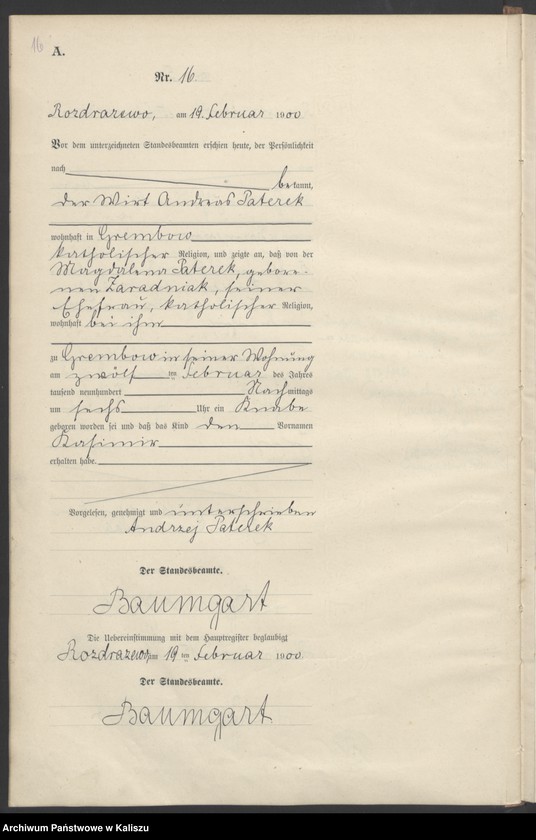 16
A.
Nr. 16.
Rozdrazewo, am 19. Februar 1900
Vor dem unterzeichneten Standesbeamten erschien heute, der Persönlichkeit
nach
bekannt,
der Wirt Andreas Paterek
wohnhaft in Grembow
katholischer Religion, und zeigte an, daß von der
Magdalena Paterek, gebore-
nen Zaradniak, seiner
Ehefrau, katholischer Religion,
wohnhaft bei ihm
zu Grembow in seiner Wohnung
am zwölf ten Februar des Jahres
tausend neunhundert Nachmittags
um sechs Uhr ein Knabe
geboren worden sei und daß das Kind den Vornamen
Kasimir
erhalten habe.
Vorgelesen, genehmigt und unterschrieben
Andrzej Paterek
Der Standesbeamte.
Baumgart
Die Uebereinstimmung mit dem Hauptregister beglaubigt
Rozdrazewo, am 19 ten Februar 1900.
Der Standesbeamte.
Baumgart
Archiwum Państwowe w Kaliszu